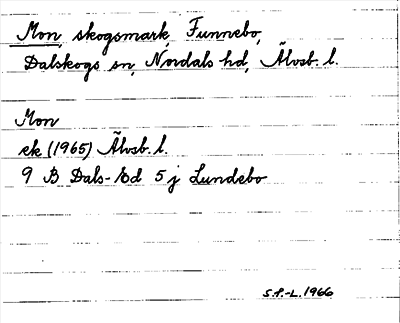 Mon, skogsmark, Funnebo,
Dalskogs sn, Nordals hd, Älvsb. l.
Mon
ek (1965) Älvsb. l.
9 B Dals-Ed 5 j Lundebo
S.P.-L. 1966